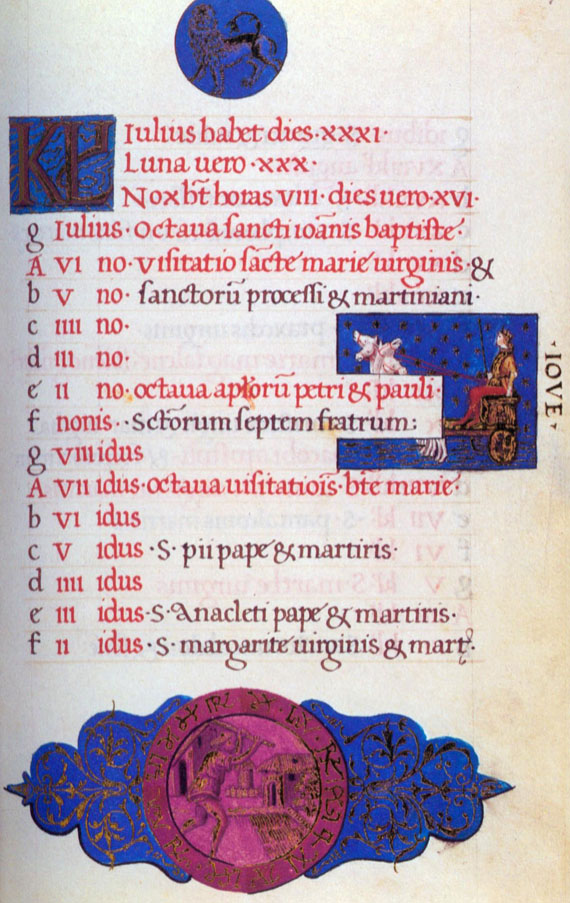 KL Iulius habet dies·xxxi·
Luna uero·xxx·
Nox hr̄t horas VIII·dies uero·xvi·
g Iulius·Octaua sancti ioānis baptiste·
A VI no·visitatio sāctę marię uirginis·&
b V no· sanctorū processi & martiniani·
c IIII no·
d III no·
e II no·octaua aplorū petri & pauli·
f nonis· ·Sctōrum septem fratrum:
g VIII idus
A VII idus·octaua uisitatiōis·btē marie·
b VI idus
c V idus·S·pii pape & martiris·
d IIII idus
e III idus·S·Anacleti pape & martiris·
f II idus·S·margarite uirginis & mart·
·IOVE·